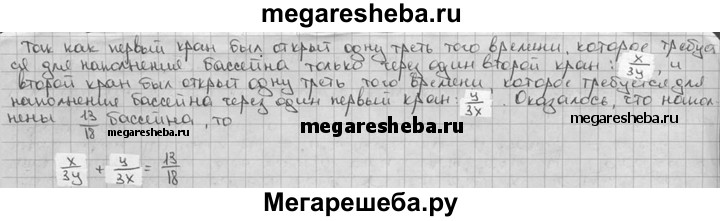 megaresheba.ru
Так как первый кран был открыт одну треть того времени, которое требует
ся для наполнения бассейна только через один второй кран: x/3y, и
второй кран был открыт одну треть того времени, которое требуется для
наполнения бассейна через один первый кран y/3x. Оказалось, что напол
нены 13/18 бассейна, то
megaresheba.ru
megaresheba.ru
megaresheba.ru
x/3y + y/3x = 13/18
Мегарешеба.ру